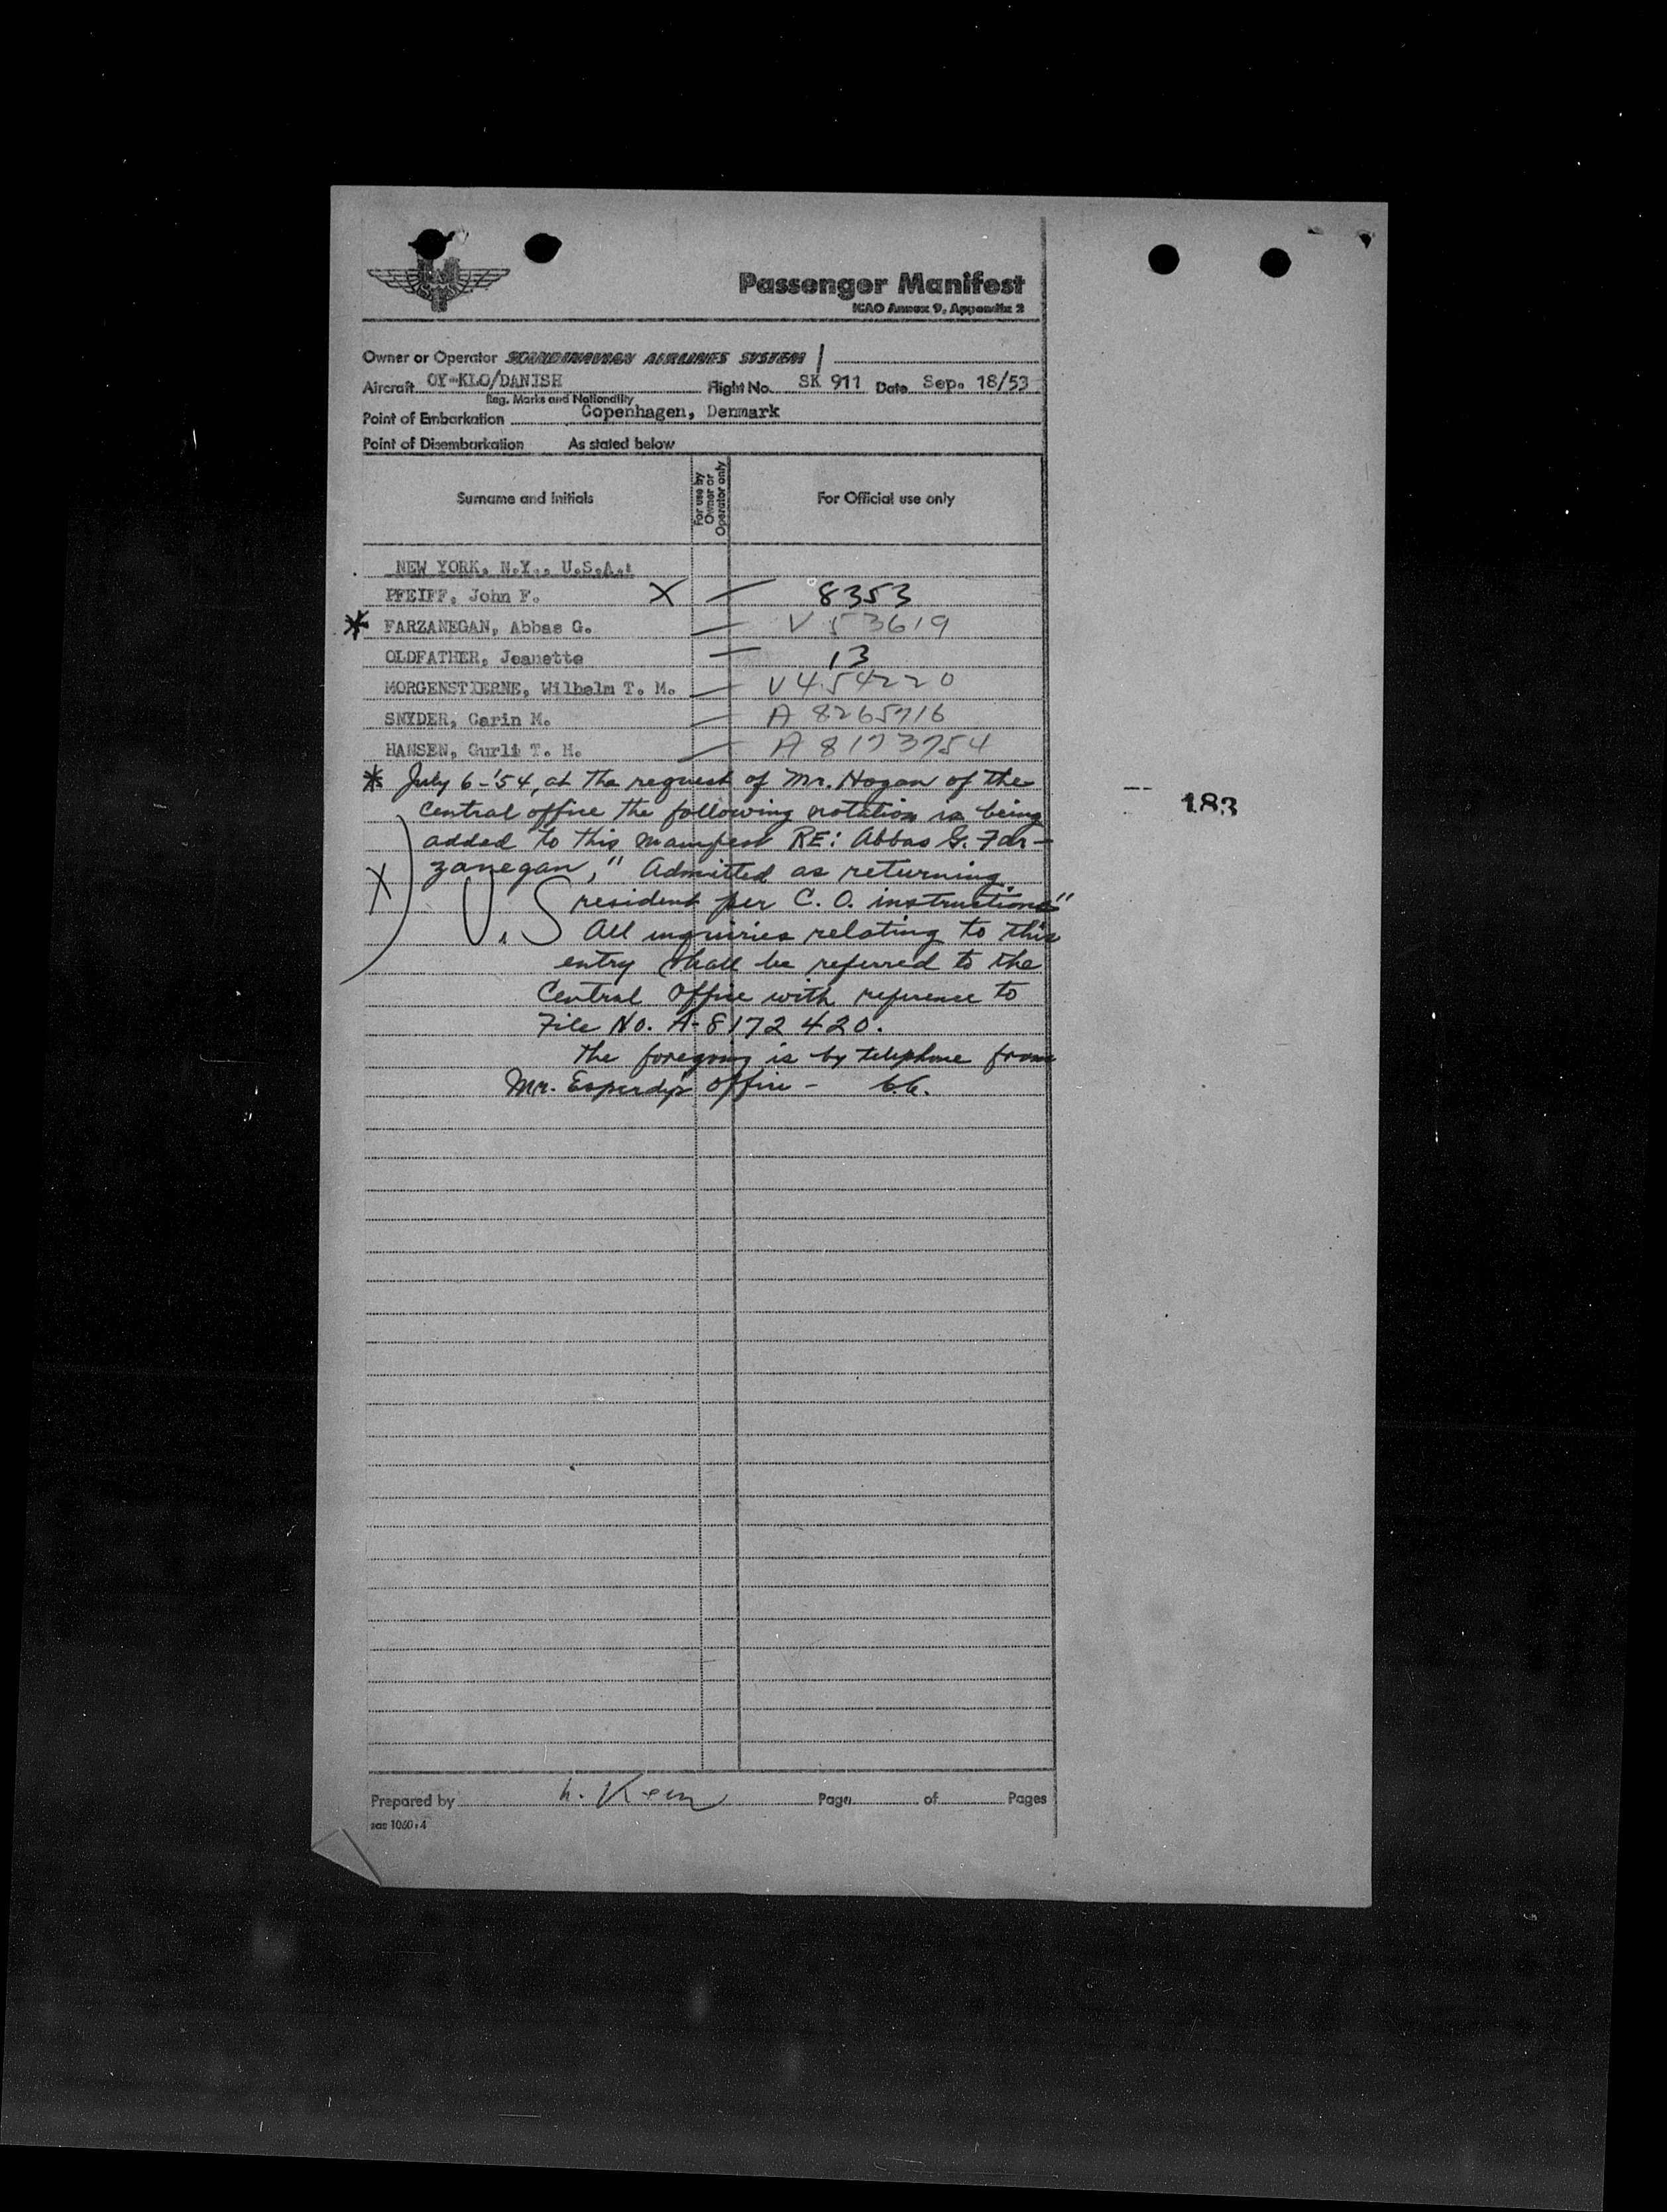 Passenger Manifest
ICAO Annex 9, Appendix 2
Owner or Operator SCANDINAVIAN AIRLINES SYSTEM
Aircraft OY-KLO/DANISH Flight No. SK 911 Date Sep. 18/53
Reg. Marks and Nationality
Point of Embarkation Copenhagen, Denmark
Point of Disembarkation As stated below
Surname and Initials For use by Owner or Operator only For Official use only
NEW YORK, N.Y., U.S.A.:
PFEIFF, John F. X — 8353
* FARZANEGAN, Abbas G. — V 53619
OLDFATHER, Jeanette — 13
MORGENSTIERNE, Wilhelm T. M. — V454220
SNYDER, Carin M. — A 8265716
HANSEN, Gurli T. H. — A 8173754
* July 6-'54, at the request of Mr. Hogan of the
Central office the following notation is being
added to this manifest RE: Abbas G. Far-
X) zanegan, " Admitted as returning
U.S resident per C. O. instructions"
All inquiries relating to this
entry shall be referred to the
Central Office with reference to
File No. A-8172420.
The foregoing is by telephone from
Mr. Esperdy's office -
-- 183
Prepared by Page of Pages
sas 1060.4